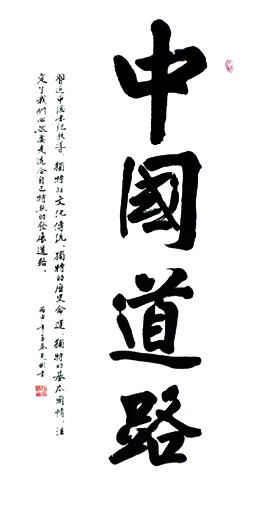 中國道路
習近平總書記教導：獨特的文化傳統，獨特的歷史命運，獨特的基本國情，注
定了我們必然要走適合自己特點的發展道路。
丙申年